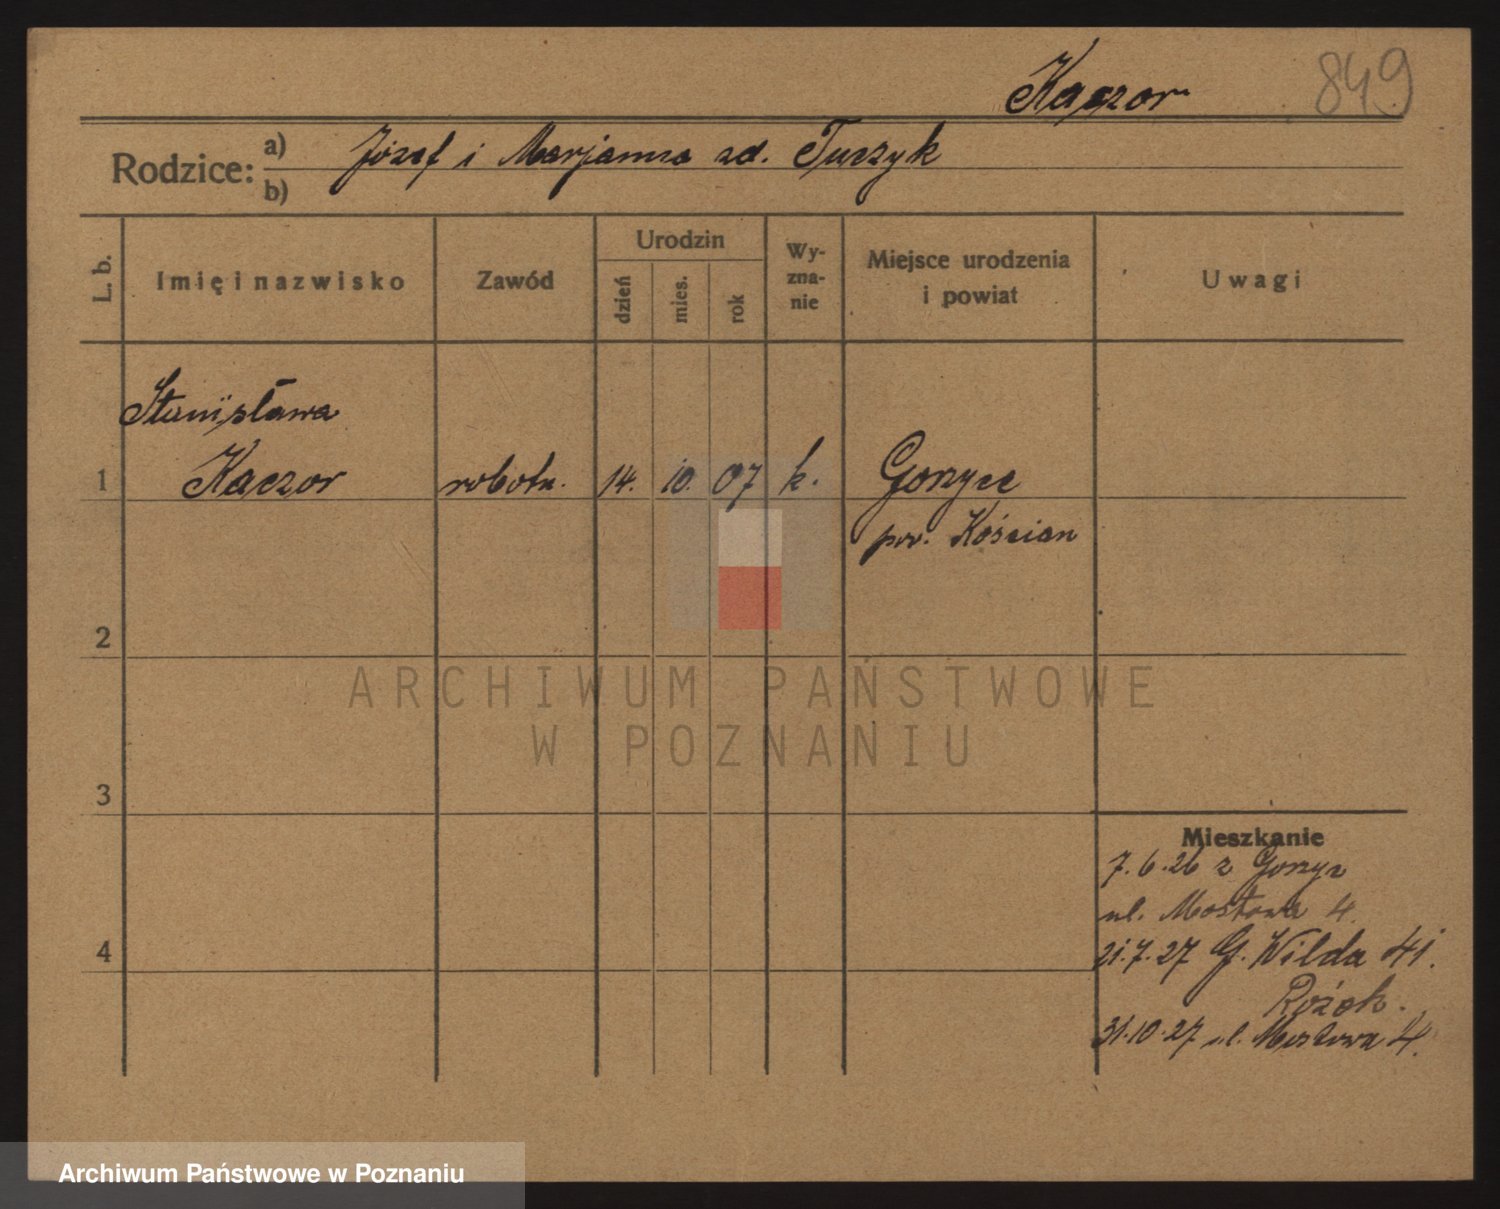 Kaczor 849
Rodzice: a) Józef i Marjanna zd. Tuczyk
b)
L. b. Imię i nazwisko Zawód Urodzin dzień mies. rok Wy-zna-nie Miejsce urodzenia i powiat Uwagi
Stanisława
1 Kaczor robotn. 14. 10. 07 k. Gorzyce
pow. Kościan
2
ARCHIWUM PAŃSTWOWE
W POZNANIU
3
Mieszkanie
7.6.26 z Gorzyc
ul. Mostowa 4.
4 21.7.27 G. Wilda 41.
Rożek.
31.10.27 ul. Mostowa 4.
Archiwum Państwowe w Poznaniu